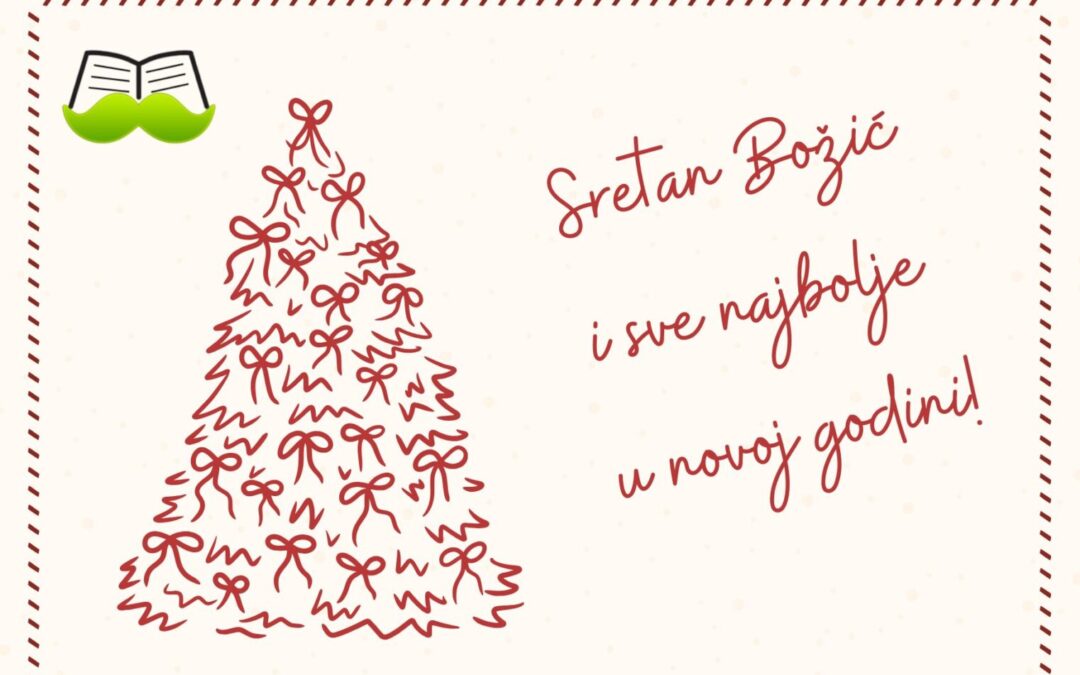 Sretan Božić
i sve najbolje
u novoj godini!